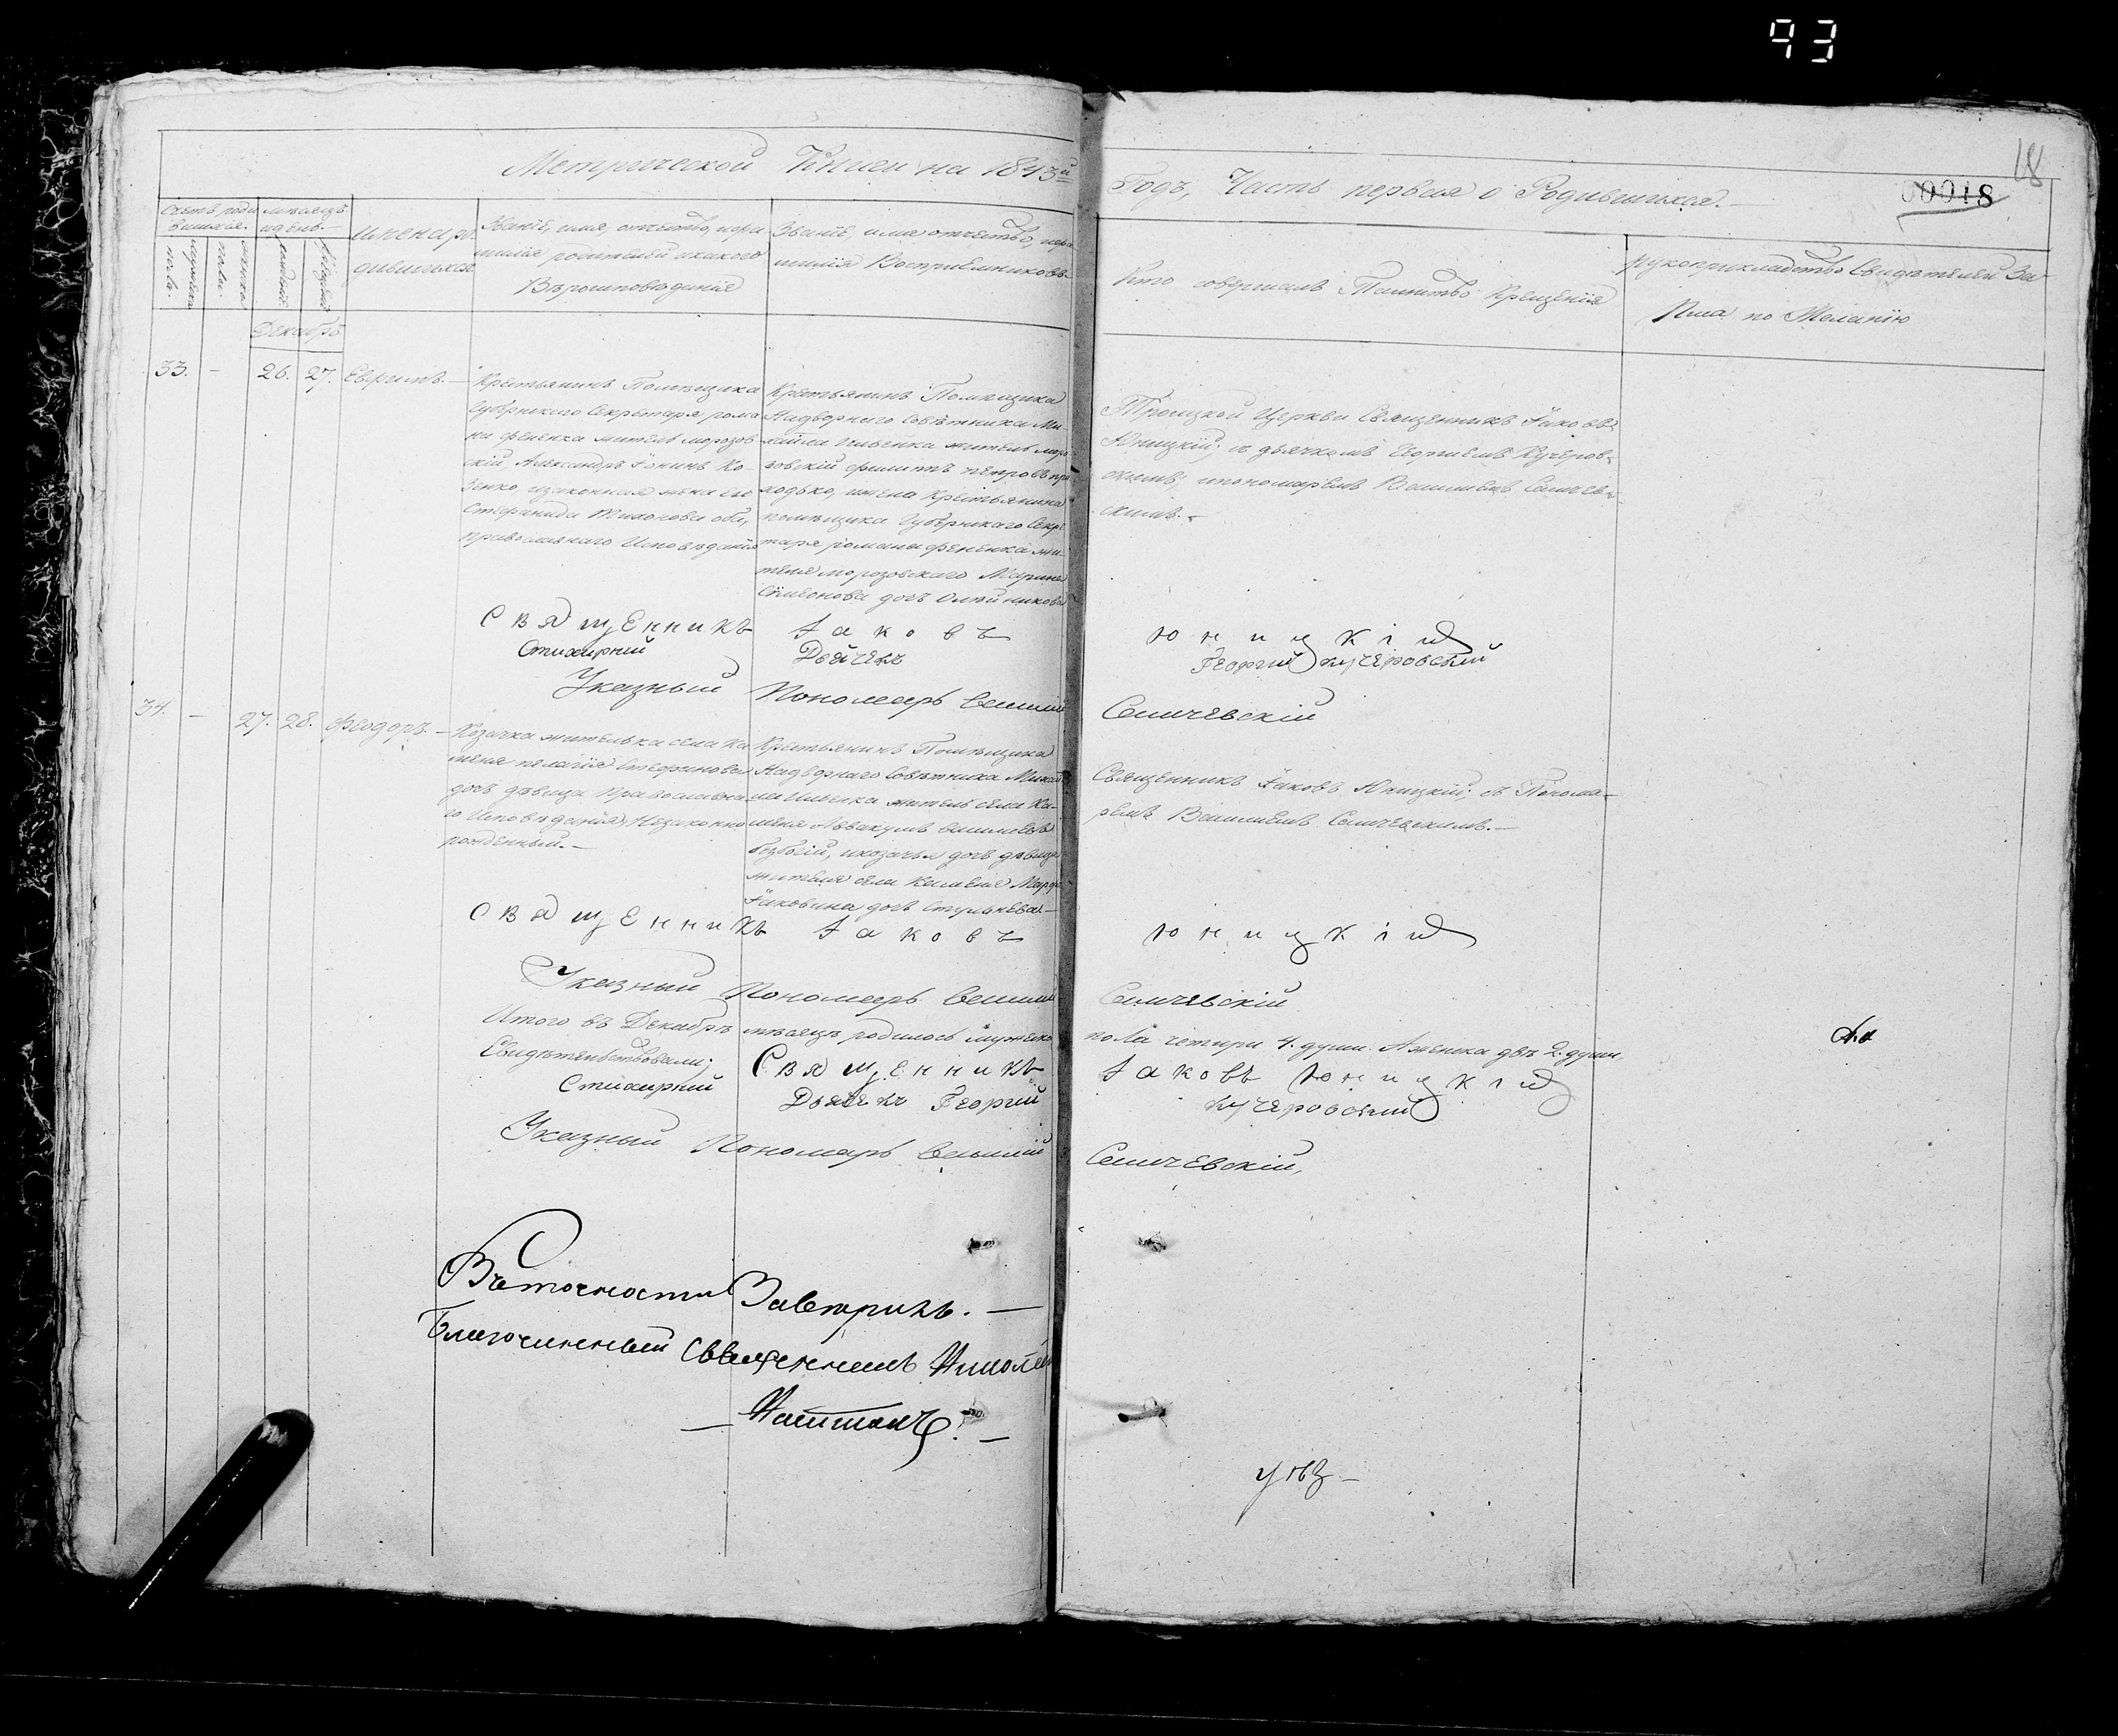 93
18
00018
Метрической Книги на 1843й
Годъ, Часть первая о Родившихся.—
Счетъ роди
вшихся.
мѣсяцъ
и день.
мужеска
пола.
женска
пола.
рожденія
крещенія
Имена ро-
дившихся
Званіе, имя, отчество, и фа
милія родителей и какого
Вѣроисповѣданія
Званіе, имя отчество, и фа
милія Воспріемниковъ
Кто совершалъ Таинство Крещенія
Рукоприкладство Свидѣтелей За-
писа по Желанію
Декабрь
33. - 26. 27. Евфимъ.—
Крестьянинъ Помѣщика
Губернского Секретаря рома
на фененка житель морозов
скій, Александръ Іонинъ Ко-
зенко, и законная жена его
Стефанида Тихонова оба,
православнаго Исповѣданія
Крестьянинъ Помѣщика
Надворного Совѣтника Ми-
хаила Ильенка житель моро
зовскій филиппъ петровъ при
ходько, и жена Крестьянина
помѣщика Губернскаго Секре
таря романа фененка жи-
теля морозовскаго Марина
Симеонова дочь Олейникова
Троицкой Церкви Священникъ Іаковъ
Юницкій; съ дьячкомъ Георгіемъ Кучеров-
скимъ; и пономаремъ Василіемъ Селичев-
скимъ.-
Священникъ Іаковъ Юницкій
Стихарный Дьячекъ Георгій Кучеровскій
Указный Пономарь Василій Селичевскій
34. - 27. 28. Феодоръ.—
Козачка жителька села Ка
меня пелагія Стефановая
дочь дѣвица Православна
го Исповѣданія, Незаконно
рожденный.—
Крестьянинъ Помѣщика
Надворнаго Совѣтника Михаи
ла Ильенка житель села Ка-
меня Аввакумъ василіевъ
безбогій, и козачья дочь дѣвица
жителя села Каменя Марфа
Іаковина дочь
Священникъ Іаковъ Юницкій; съ Понома-
ремъ Василіемъ Селичевскимъ.—
Священникъ Іаковъ Юницкій
Указный Пономарь Василій Селичевскій
Итого въ Декабрѣ мѣсяцѣ родилось мужеска пола четыри 4. души. А женска двѣ 2. души,
Свидѣтельствовали; Священникъ Іаковъ Юницкій
Стихарный Дьячекъ Георгій Кучеровскій
Указный Пономарь Василій Селичевскій,
Въ точности Завѣрилъ.—
Благочинный Священникъ Николай